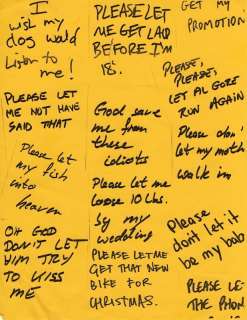 I
wish my
dog would
listen to
me!
PLEASE LET
ME NOT HAVE
SAID THAT
Please let
my fish
into
heaven
OH GOD
DON'T LET
HIM TRY
TO KISS
ME
PLEASE LET
ME GET LAID
BEFORE I'M
18.
God save
me from
these
idiots
Please let me
loose 10 lbs.
by my
wedding
PLEASE LET ME
GET THAT NEW
BIKE FOR
CHRISTMAS.
GET MY
PROMOTION
PLEASE,
PLEASE,
LET AL GORE
RUN AGAIN
Please don
let my moth
walk in
Please
don't let it
be my bab
PLEASE LE
THE PHON